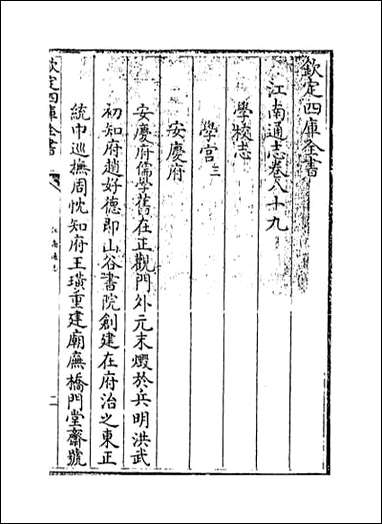 欽定四庫全書
江南通志卷八十九
學校志
學宫三
安慶府
安慶府儒學舊在正觀門外元末燬於兵明洪武
初知府趙好德即山谷書院創建在府治之東正
統中巡撫周忱知府王璜重建廟廡橋門堂齋號
欽定四庫全書
江南通志
一